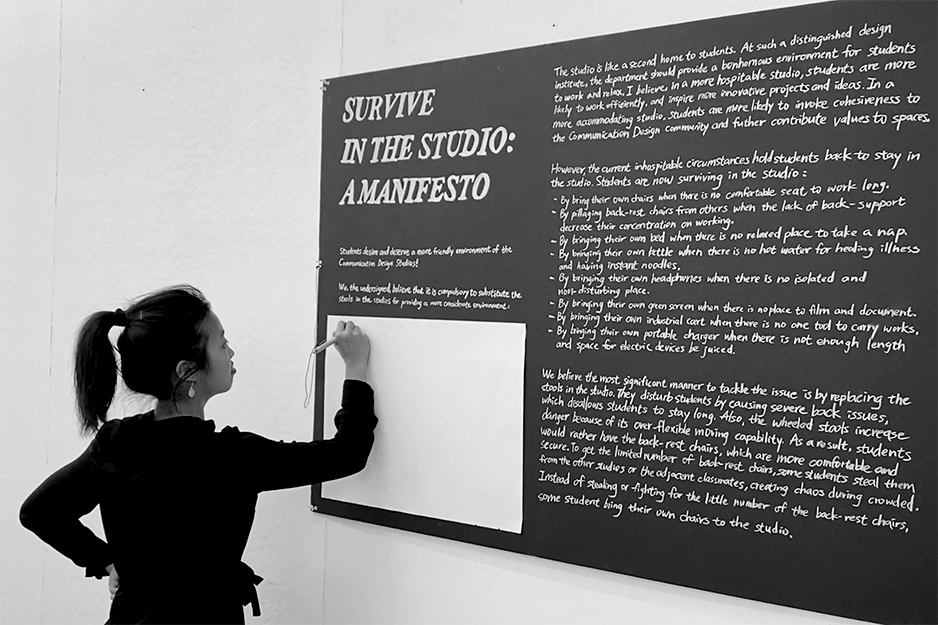 SURVIVE
IN THE STUDIO:
A MANIFESTO
Students desire and deserve a more friendly environment of the
Communication Design Studios!
We, the undersigned, believe that it is compulsory to substitute the
stools in the studios for providing a more considerate environment.
The studio is like a second home to students. At such a distinguished design
institute, the department should provide a bonhomous environment for students
to work and relax. I believe, in a more hospitable studio, students are more
likely to work efficiently, and inspire more innovative projects and ideas. In a
more accommodating studio, students are more likely to invoke cohesiveness to
the Communication Design community and futher contribute values to spaces.
However, the current inhospitable circumstances hold students back to stay in
the studio. Students are now surviving in the studio:
- By bring their own chairs when there is no comfortable seat to work long.
- By pillaging back-rest chairs from others when the lack of back-support
decrease their concertation on working.
- By bringing their own bed when there is no relaxed place to take a nap.
- By bringing their own kettle when there is no hot water for healing illness
and having instant noodles.
- By bringing their own headphones when there is no isolated and
non-disturbing place.
- By bringing their own green screen when there is no place to film and document.
- By bringing their own industrial cart when there is no one tool to carry works.
- By bringing their own portable charger when there is not enough length
and space for electric devices be juiced.
We believe the most significant manner to tackle the issue is by replacing the
stools in the studio. They disturb students by causing severe back issues,
which disallows students to stay long. Also, the wheeled stools increase
danger because of its over-flexible moving capability. As a result, students
would rather have the back-rest chairs, which are more comfortable and
secure. To get the limited number of back-rest chairs, some students steal them
from the other studios or the adjacent classmates, creating chaos during crowded.
Instead of stealing or fighting for the little number of the back-rest chairs,
some student bring their own chairs to the studio.